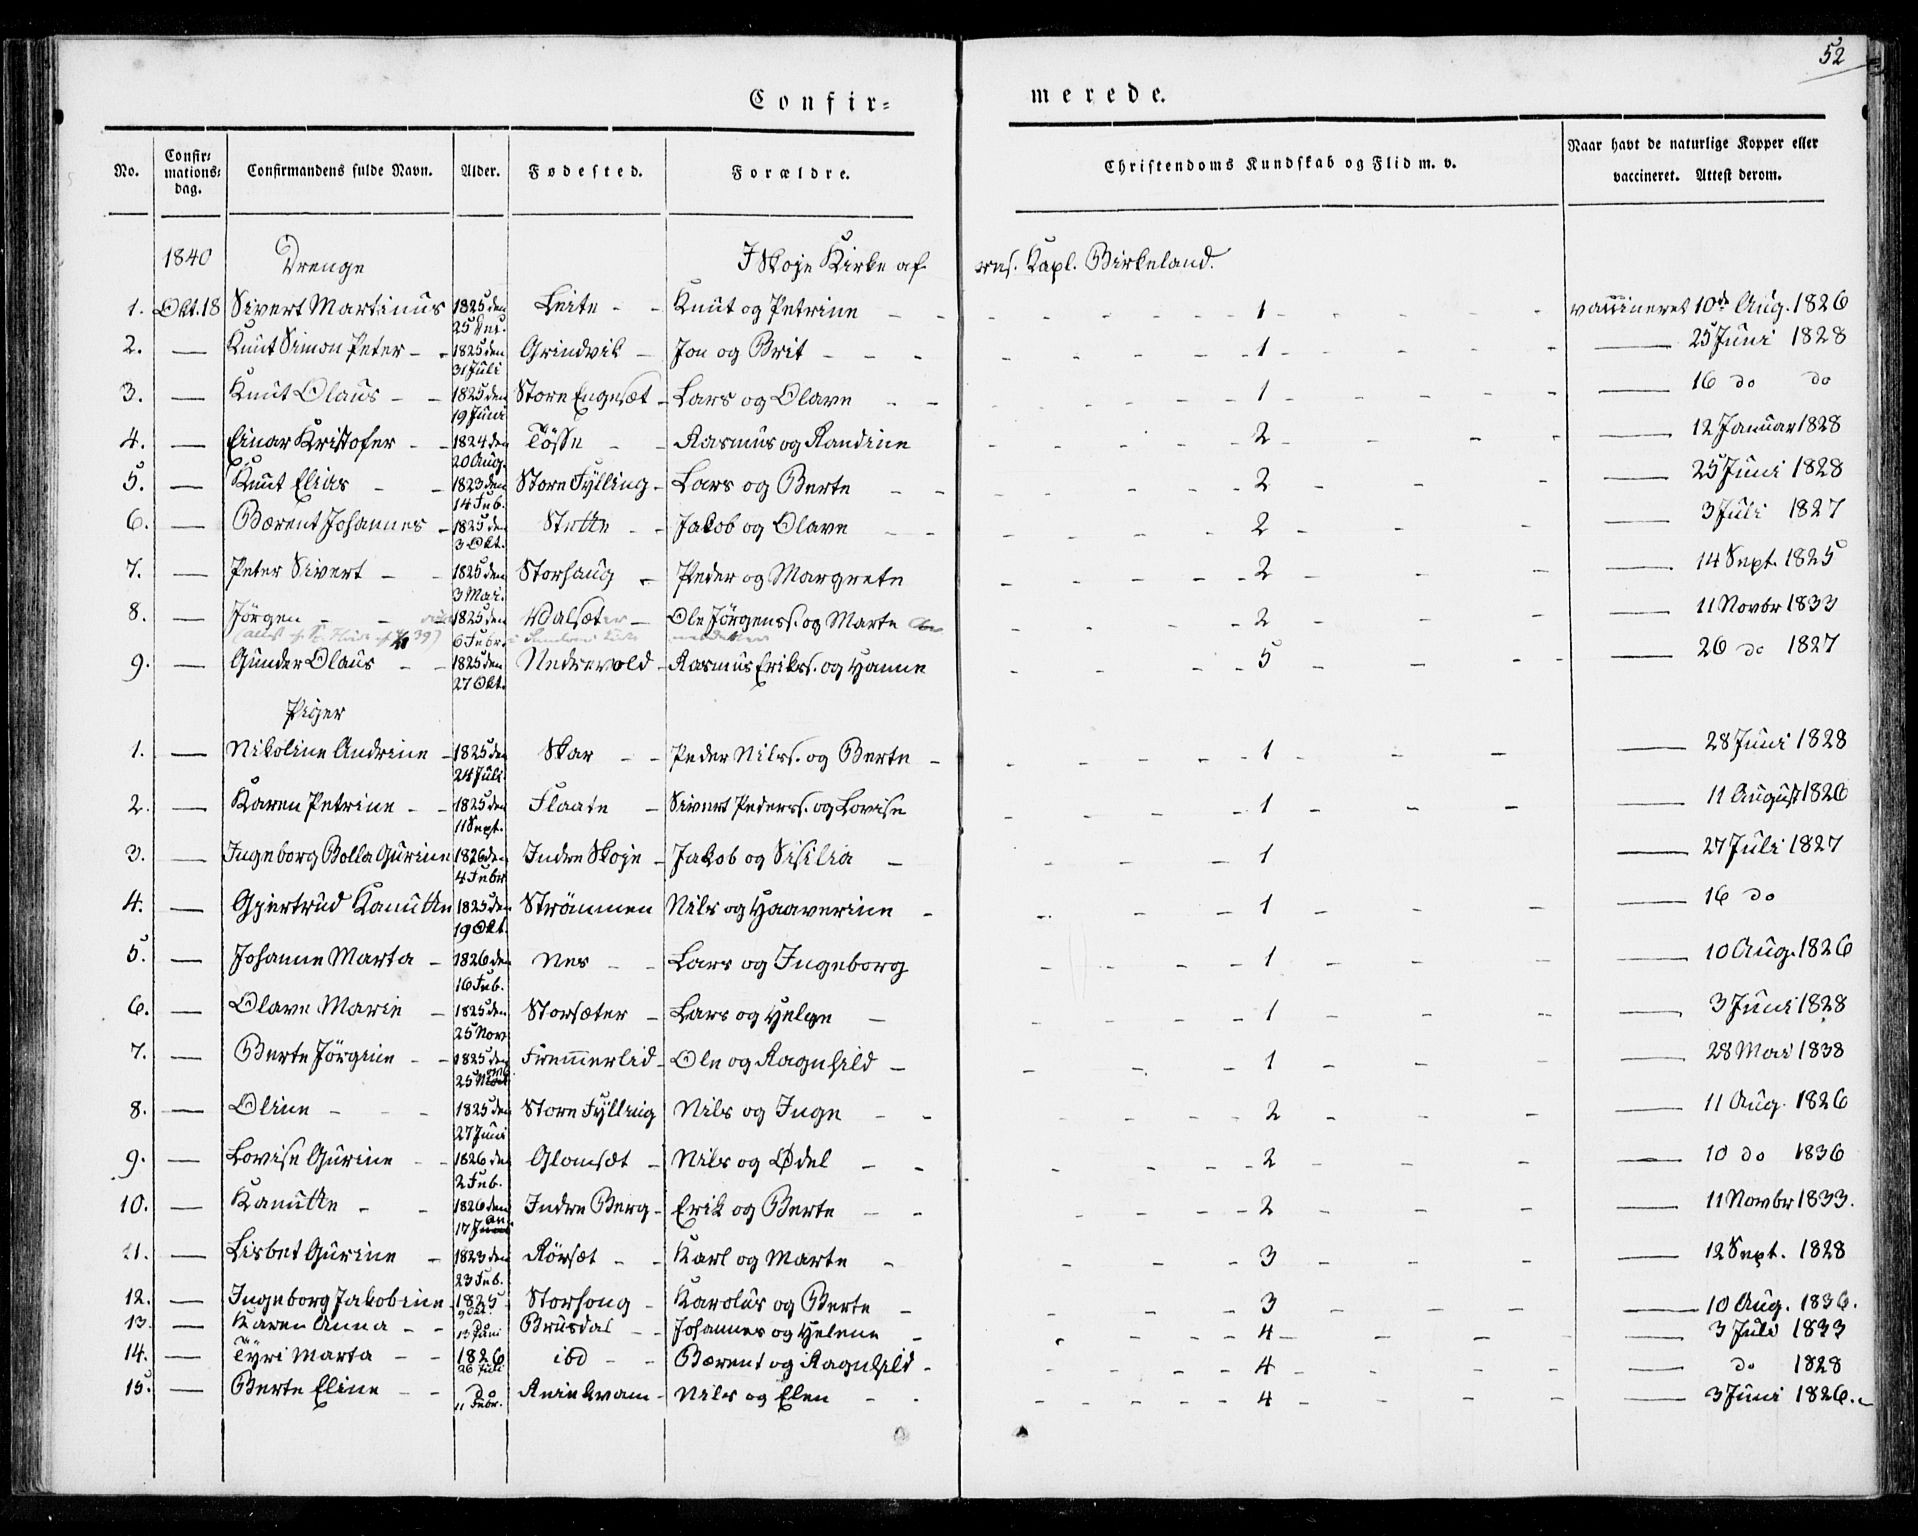 52
Confir-
merede.
No. Confirmations-dag. Confirmandens fulde Navn. Alder. Fødested. Forældre. Christendoms Kundskab og Flid m. v. Naar havt de naturlige Kopper eller vaccineret. Attest derom.
1840 Drenge I Skoje Kirke af res. Kapl. Birkeland.
1. Okt. 18 Sivert Martinus 1825 den 25 Leite - - Knut og Petrine - - 1 vaccineret 10de Aug. 1826
2. — Knut Simon Peter - 1825 den 31 Juli Grindvik - Jon og Brit - - - 1 — 25 Juni 1828
3. — Knut Olaus - - 1825 den 19 Juni Store Engesæt - Lars og Olave - - 1 — 16 do do
4. — Einar Kristofer - - 1824 den 20 Aug. Tösse - - Rasmus og Randine 2 — 12 Januar 1828
5. — Knut Elias - - 1823 den 14 Feb. Store Fylling - Lars og Berte - - 2 — 25 Juni 1828
6. — Bærent Johannes - 1825 den 3 Okt. Stette - - Jakob og Olave - - 2 — 3 Juli 1827
7. — Peter Sivert - - 1825 den 3 Mai. Storhaug - Peder og Margrete 2 — 14 Sept. 1825
8. — Jörgen - - 1825 den 6 Febr. Valsæter - Ole Jörgenss. og Marte 2 — 11 Novbr 1833
9. — Gunder Olaus - - 1825 den 27 Okt. Nedrevold - Rasmus Erikss. og Hanne 5 — 26 do 1827
Piger
1. — Nikoline Andrine - 1825 den 24 Juli Skar - - Peder Nilss. og Berte - 1 — 28 Juni 1828
2. — Karen Petrine - - 1825 den 11 Sept. Flaate - Sivert Pederss. og Lovise 1 — 11 August 1826
3. — Ingeborg Bolla Gurine 1826 den 4 Febr Indre Skoje - Jakob og Sisilia - 1 — 27 Juli 1827
4. — Gjertrud Kanutte 1825 den 19 Okt. Strömmen Nils og Haaverine - 1 — 16 do
5. — Johanne Marta - 1826 den 16 Feb. Nes - - Lars og Ingeborg 1 — 10 Aug. 1826
6. — Olave Marie - 1825 den 25 Nov Storsæter - Lars og Helge - 1 — 3 Juni 1828
7. — Berte Jörgine - - 1825 den 25 Fremmerlid - Ole og Ragnhild - 1 — 28 Mai 1838
8. — Oline - - - 1825 den 27 Juni Store Fylling Nils og Inge - - 2 — 11 Aug. 1826
9. — Lovise Gurine - - 1826 den 2 Feb. Glomsæt - Nils og Ødel - - 2 — 10 do 1836
10. — Kanutte - - 1826 den 17 Jan Indre Berg - Erik og Berte - - 2 — 11 Novbr 1833.
11. — Lisbet Gurine - 1823 den 23 Feb. Rörsæt - - Karl og Marte - 3 — 12 Sept. 1828
12. — Ingeborg Jakobine 1825 9 Okt. Storhoug - Karolus og Berte - 3 — 10 Aug. 1836.
13. — Karen Anna - - do 13 Juni Brusdal - - Johannes og Helene - 4 — 3 Juli 1833
14. — Tyri Marta - - 1826 26 Juli ibd - - Bærent og Ragnhild - 4 — do 1828
15. — Berte Eline - - do 11 Febr. Reinkvam - Nils og Elen - - 4 — 3 Juni 1826.